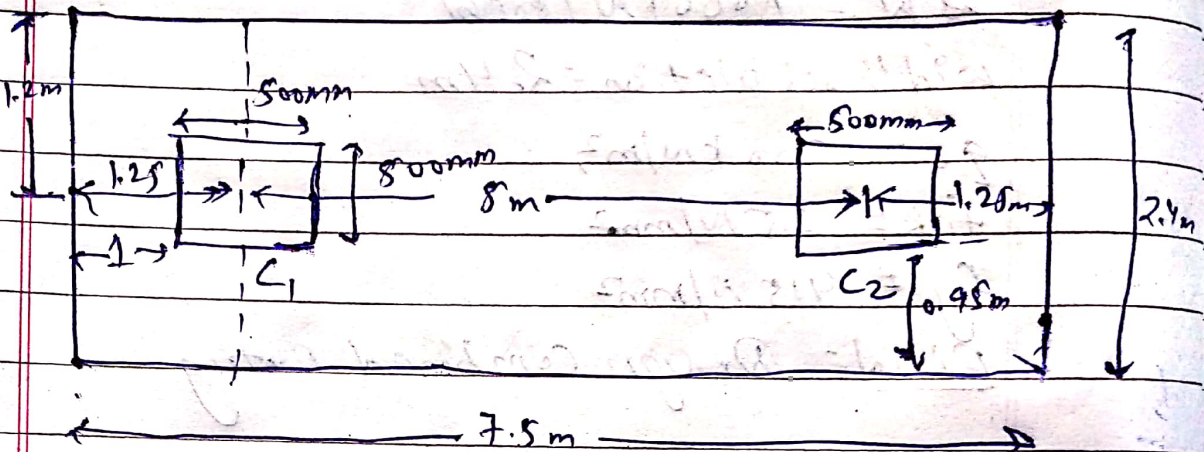 1.2m
500mm
500mm
1.25
500mm
5m
1.25m
2.4m
1
C1
C2
0.95m
7.5m